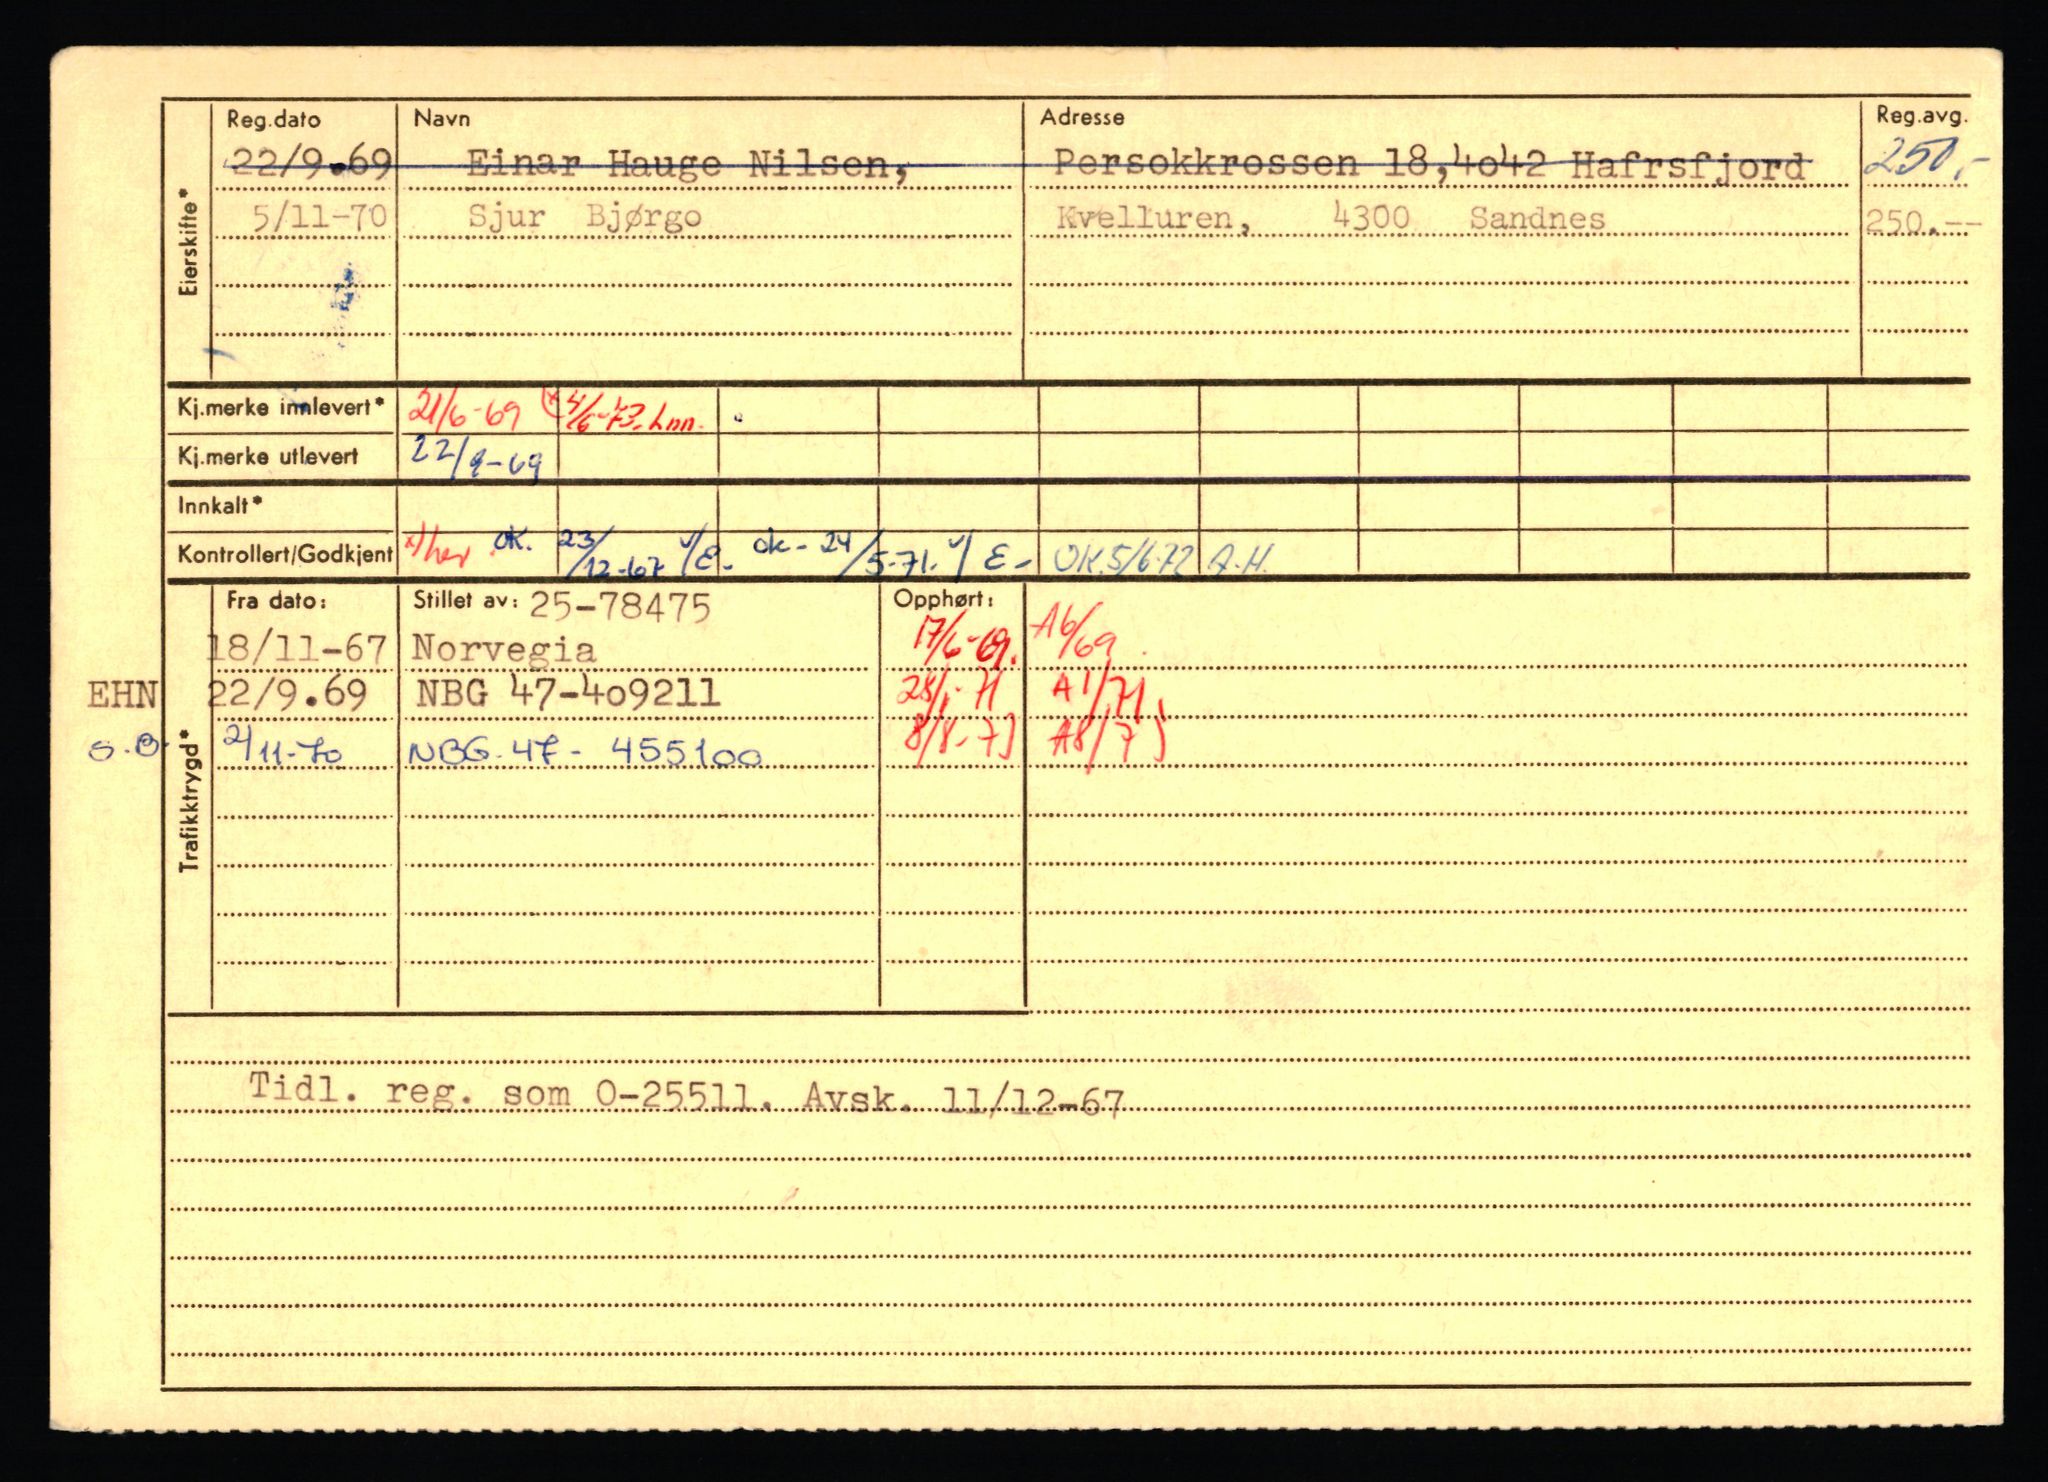 Reg.dato Navn Adresse Reg.avg.
22/9.69 Einar Hauge Nilsen, Persokkrossen 18,4o42 Hafrsfjord 250,-
5/11-70 Sjur Bjørgo Kvelluren, 4300 Sandnes 250.--
Eierskifte*
Kj.merke innlevert* 21/6-69 (x 4/6-73. Lnn.
Kj.merke utlevert 22/9-69
Innkalt*
Kontrollert/Godkjent x) her OK. 23/12-67 v/E- ok- 24/5-71. v/E- OK.5/6.72 A.H.
Fra dato: Stillet av: 25-78475 Opphørt:
18/11-67 Norvegia 17/6-69. A6/69
EHN 22/9.69 NBG 47-4o9211 28/1-71 A1/71
S.B. 2/11-70 NBG-47- 455100 8/8-73 A8/73
Trafikktrygd*
Tidl. reg. som O-25511. Avsk. 11/12-67